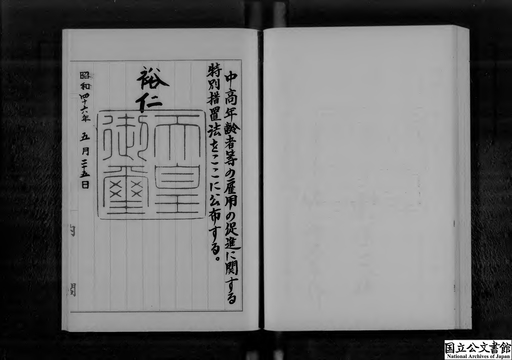 中高年齢者等の雇用の促進に関する
特別措置法をここに公布する。
裕仁
天皇
御璽
昭和四十六年 五月二十五日
国立公文書館
National Archives of Japan